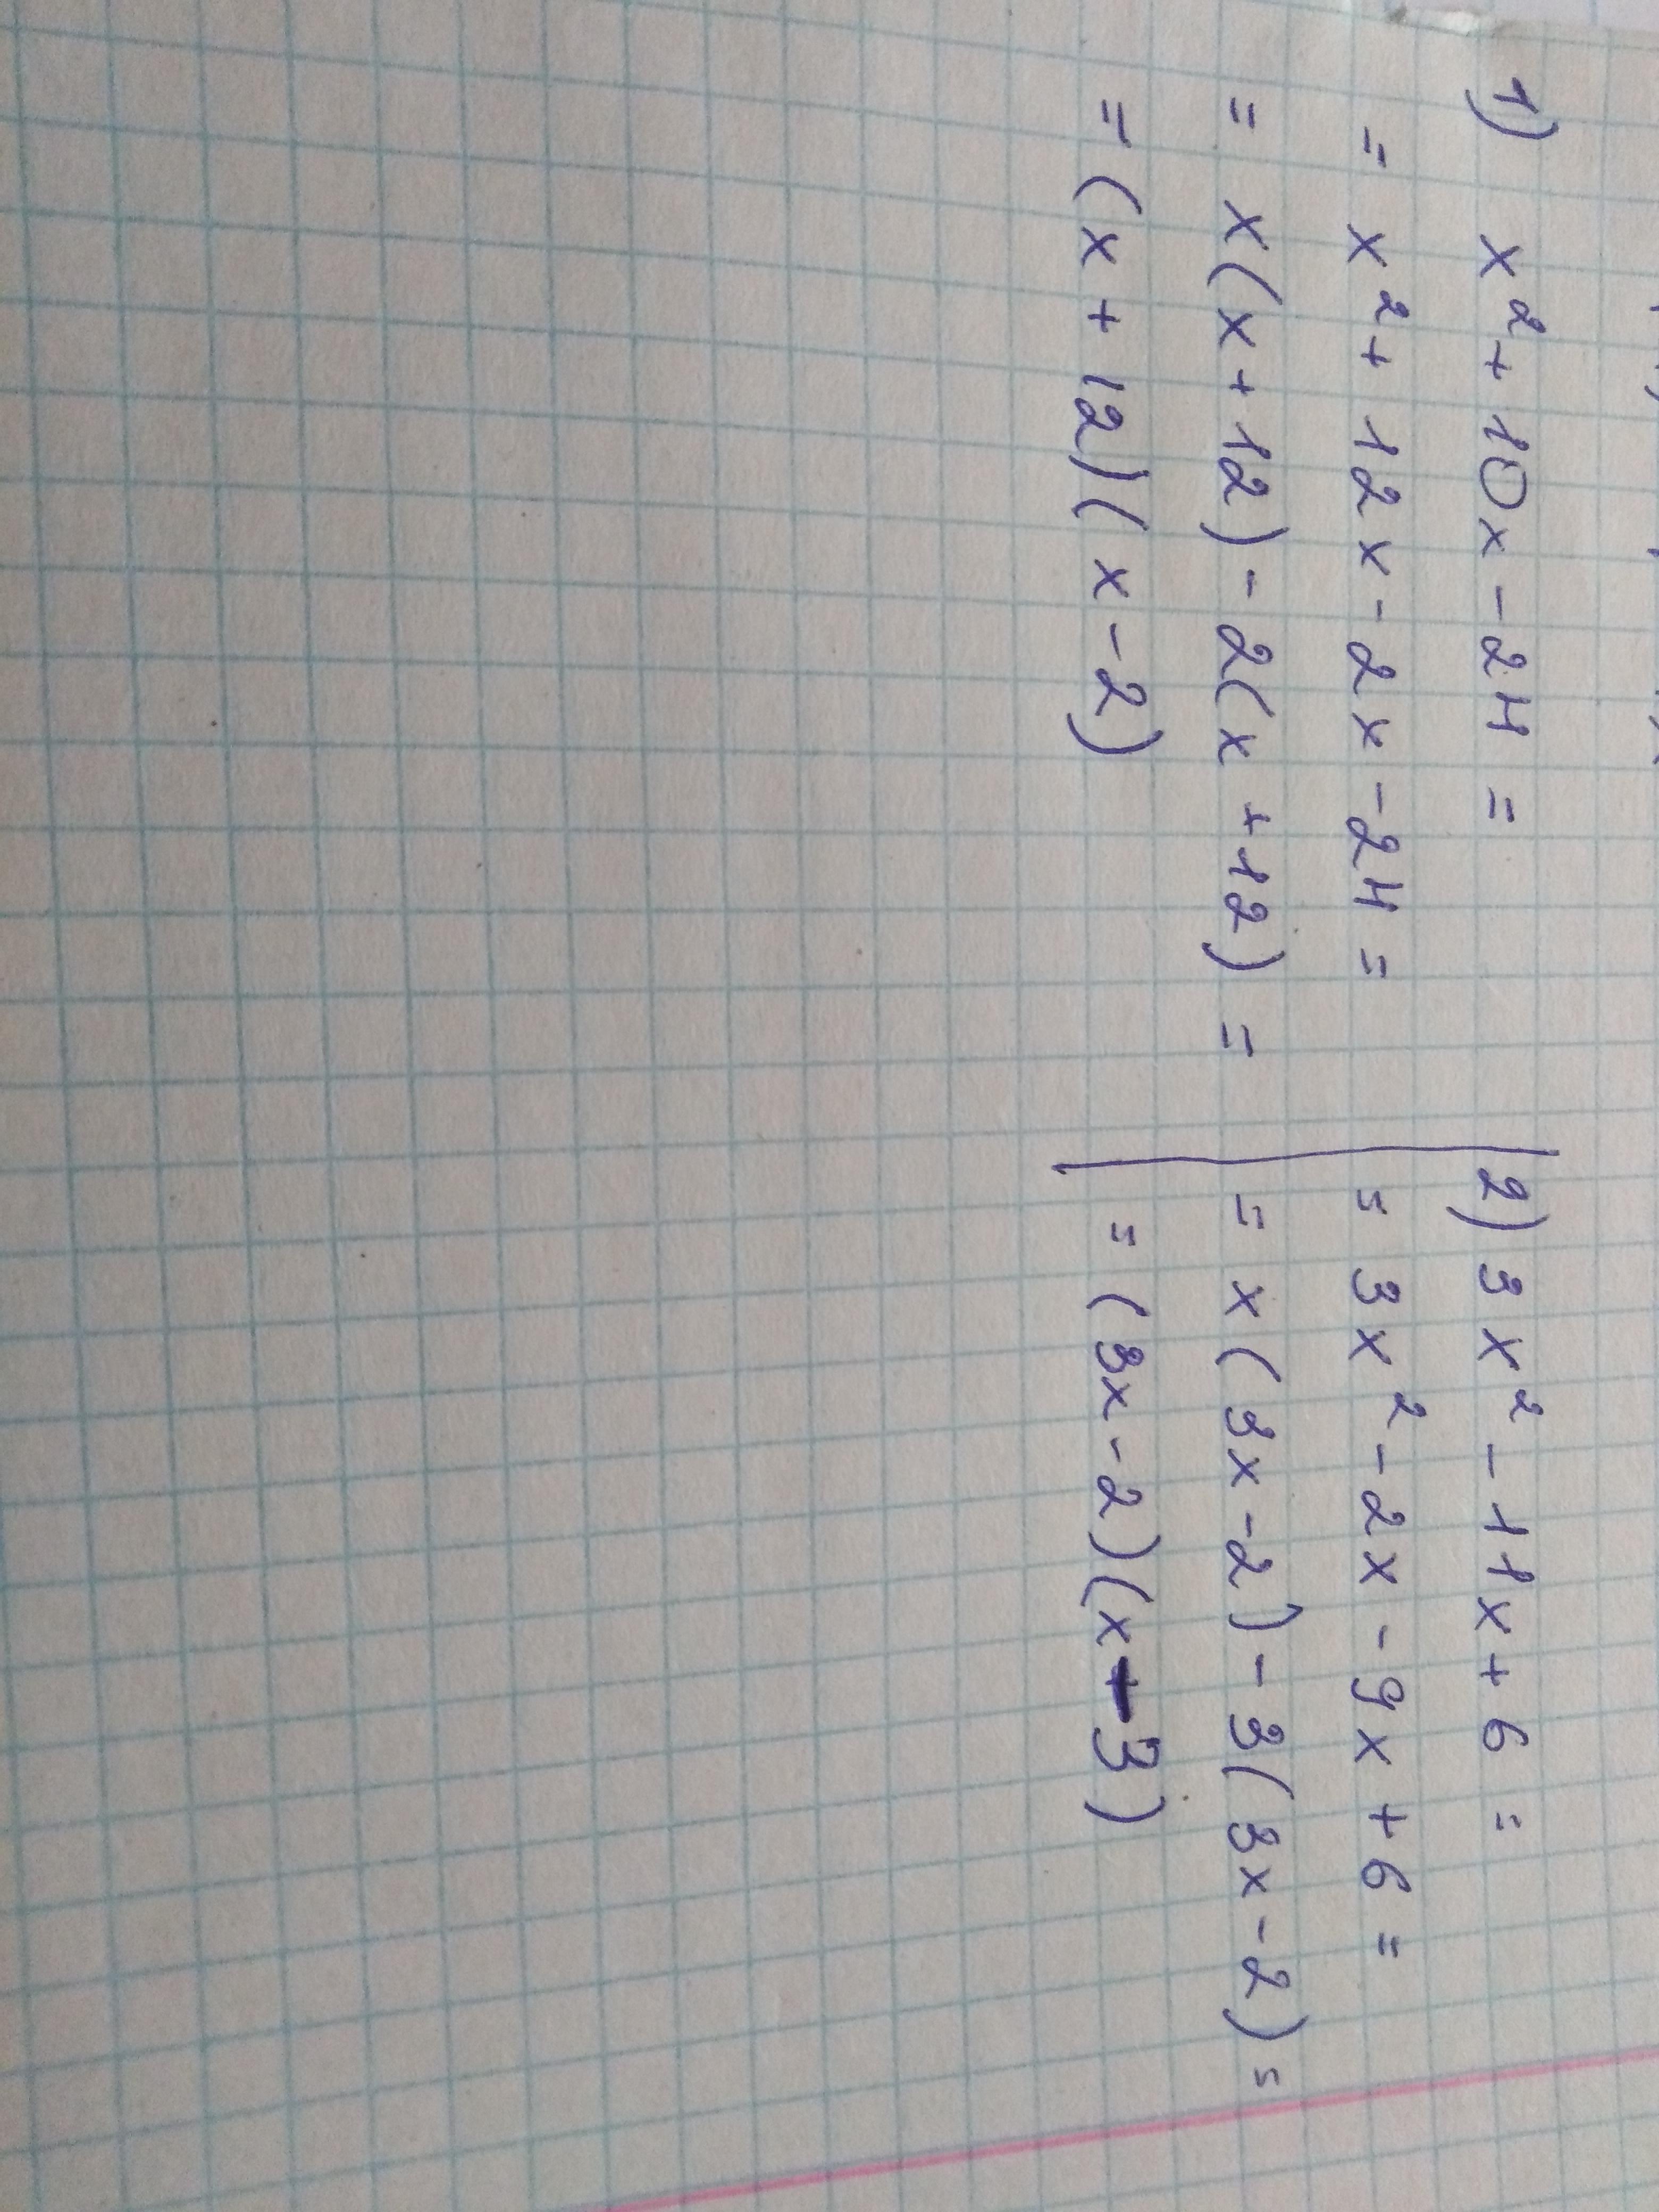 1) x² + 10x - 24 =
= x² + 12x - 2x - 24 =
= x(x + 12) - 2(x + 12) =
= (x + 12)(x - 2)
2) 3x² - 11x + 6 =
= 3x² - 2x - 9x + 6 =
= x(3x - 2) - 3(3x - 2) =
= (3x - 2)(x - 3)